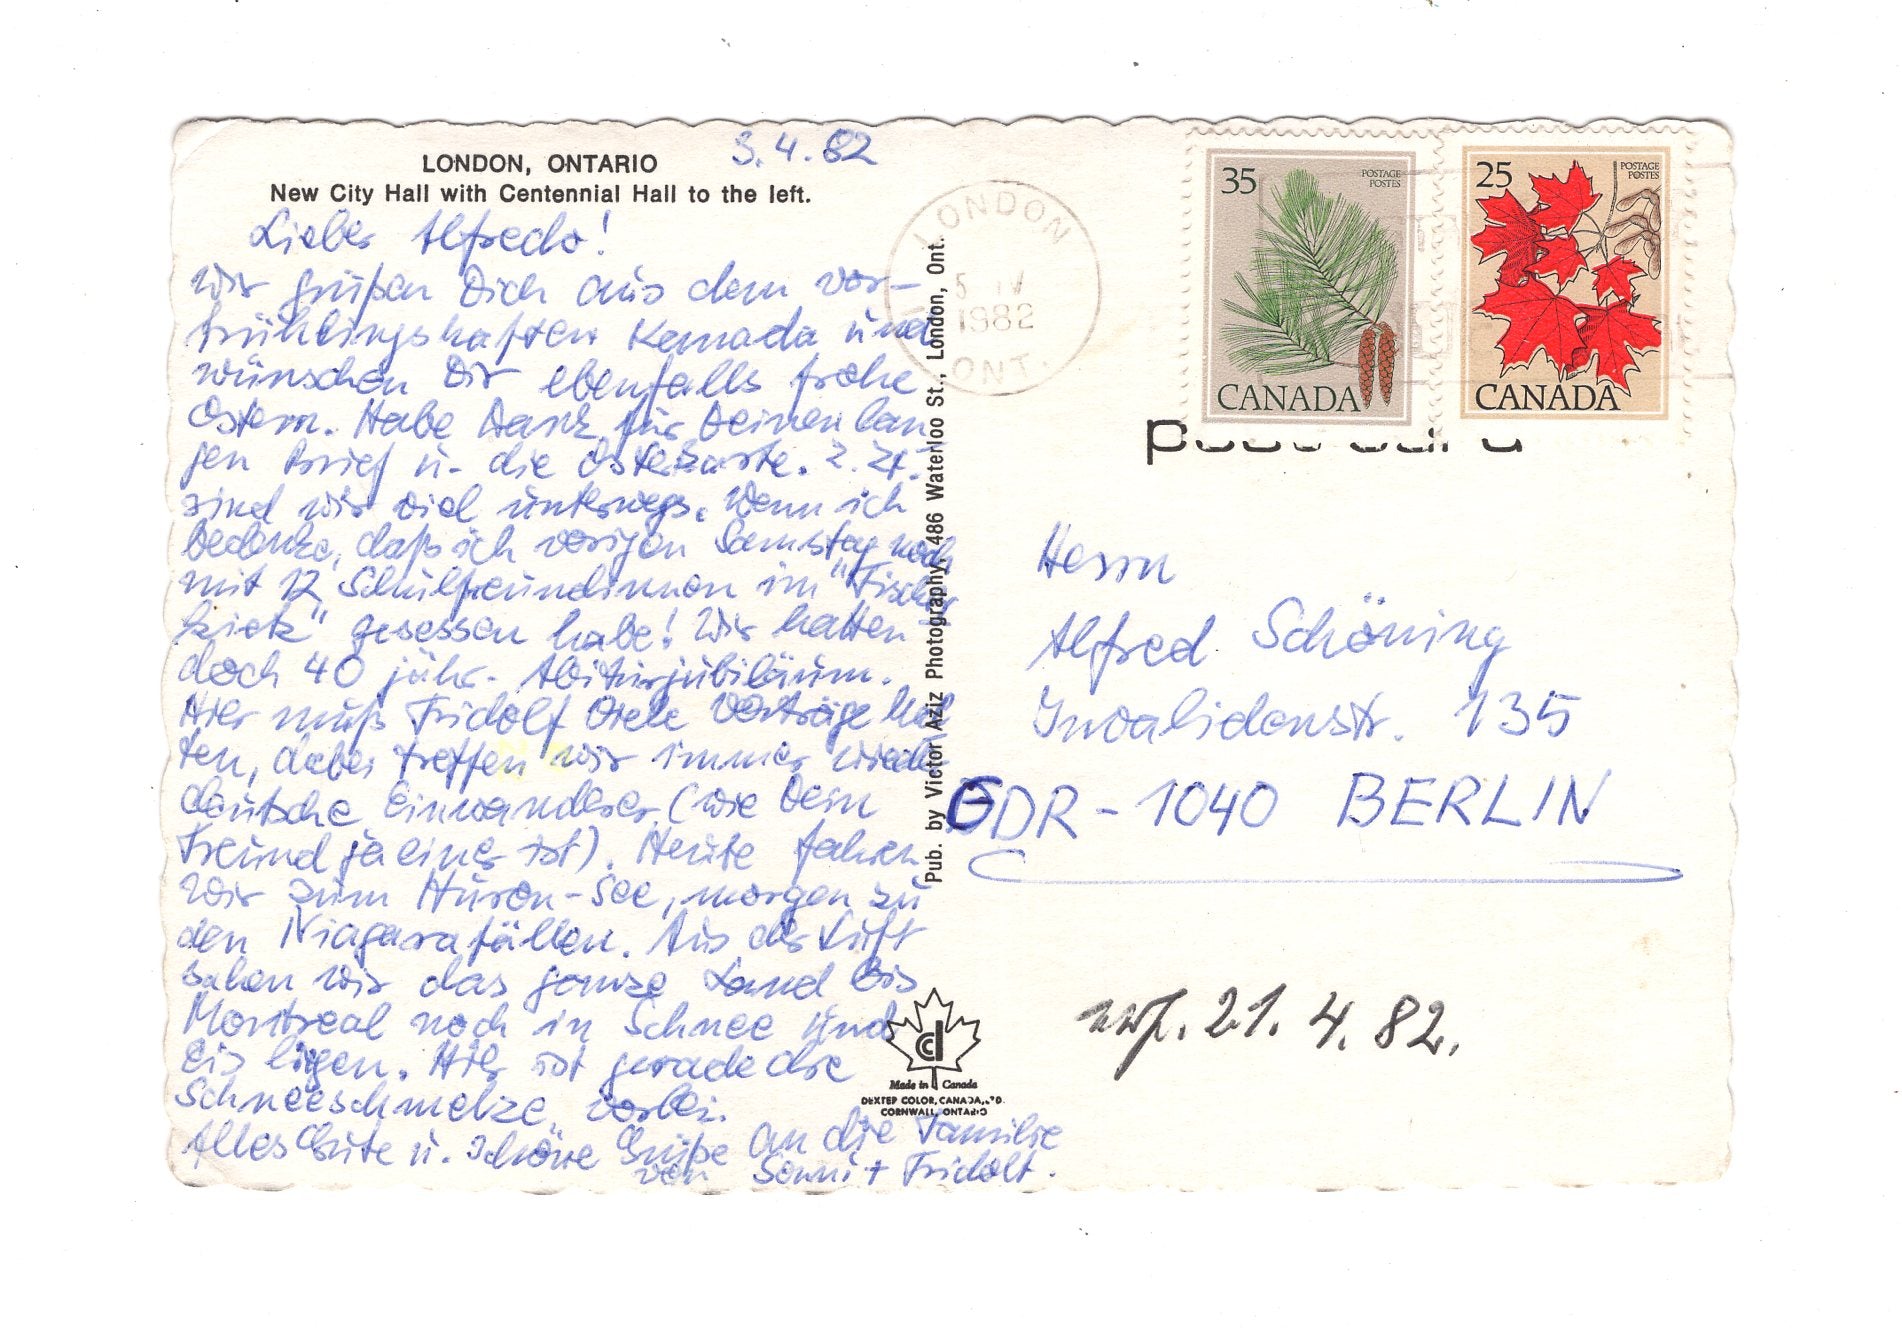 LONDON, ONTARIO
New City Hall with Centennial Hall to the left.
3.4.82
Lieber Alfredo!
wir grüßen Dich aus dem vor-
frühlingshaften Kanada und
wünschen Dir ebenfalls frohe
Ostern. Habe Dank für Deinen lan-
gen Brief u. die Osterkarte. Z. Zt.
sind wir viel unterwegs. Wenn ich
bedenke, daß ich vorigen Samstag noch
mit 12 Schulfreundinnen im "Fischer-
kietz" gesessen habe! Wir hatten
doch 40 jähr. Abiturjubiläum.
Hier muß Fridolf viele Vorträge hal
ten, dabei treffen wir immer wieder
deutsche Einwanderer (wie Dein
Freund ja einer ist). Heute fahren
wir zum Huron-See, morgen zu
den Niagarafällen. Aus der Luft
sahen wir das ganze Land bis
Montreal noch in Schnee und
Eis liegen. Hier ist gerade die
Schneeschmelze vorbei.
Alles Gute u. schöne Grüße an die Familie
von + Fridolf.
Pub. by Victor Aziz Photography, 486 Waterloo St., London, Ont.
Made in Canada
DEXTER COLOR, CANADA, LTD.
CORNWALL, ONTARIO
LONDON
5 IV
1982
ONT.
35
POSTAGE
POSTES
CANADA
25
POSTAGE
POSTES
CANADA
post card
Herrn
Alfred Schöning
Invalidenstr. 135
GDR - 1040 BERLIN
21. 4. 82.